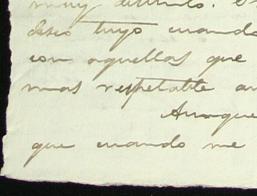 muy distinto. 
deseo tuyo cuando
con aquellas que
mas respetable
Aunque
que cuando me